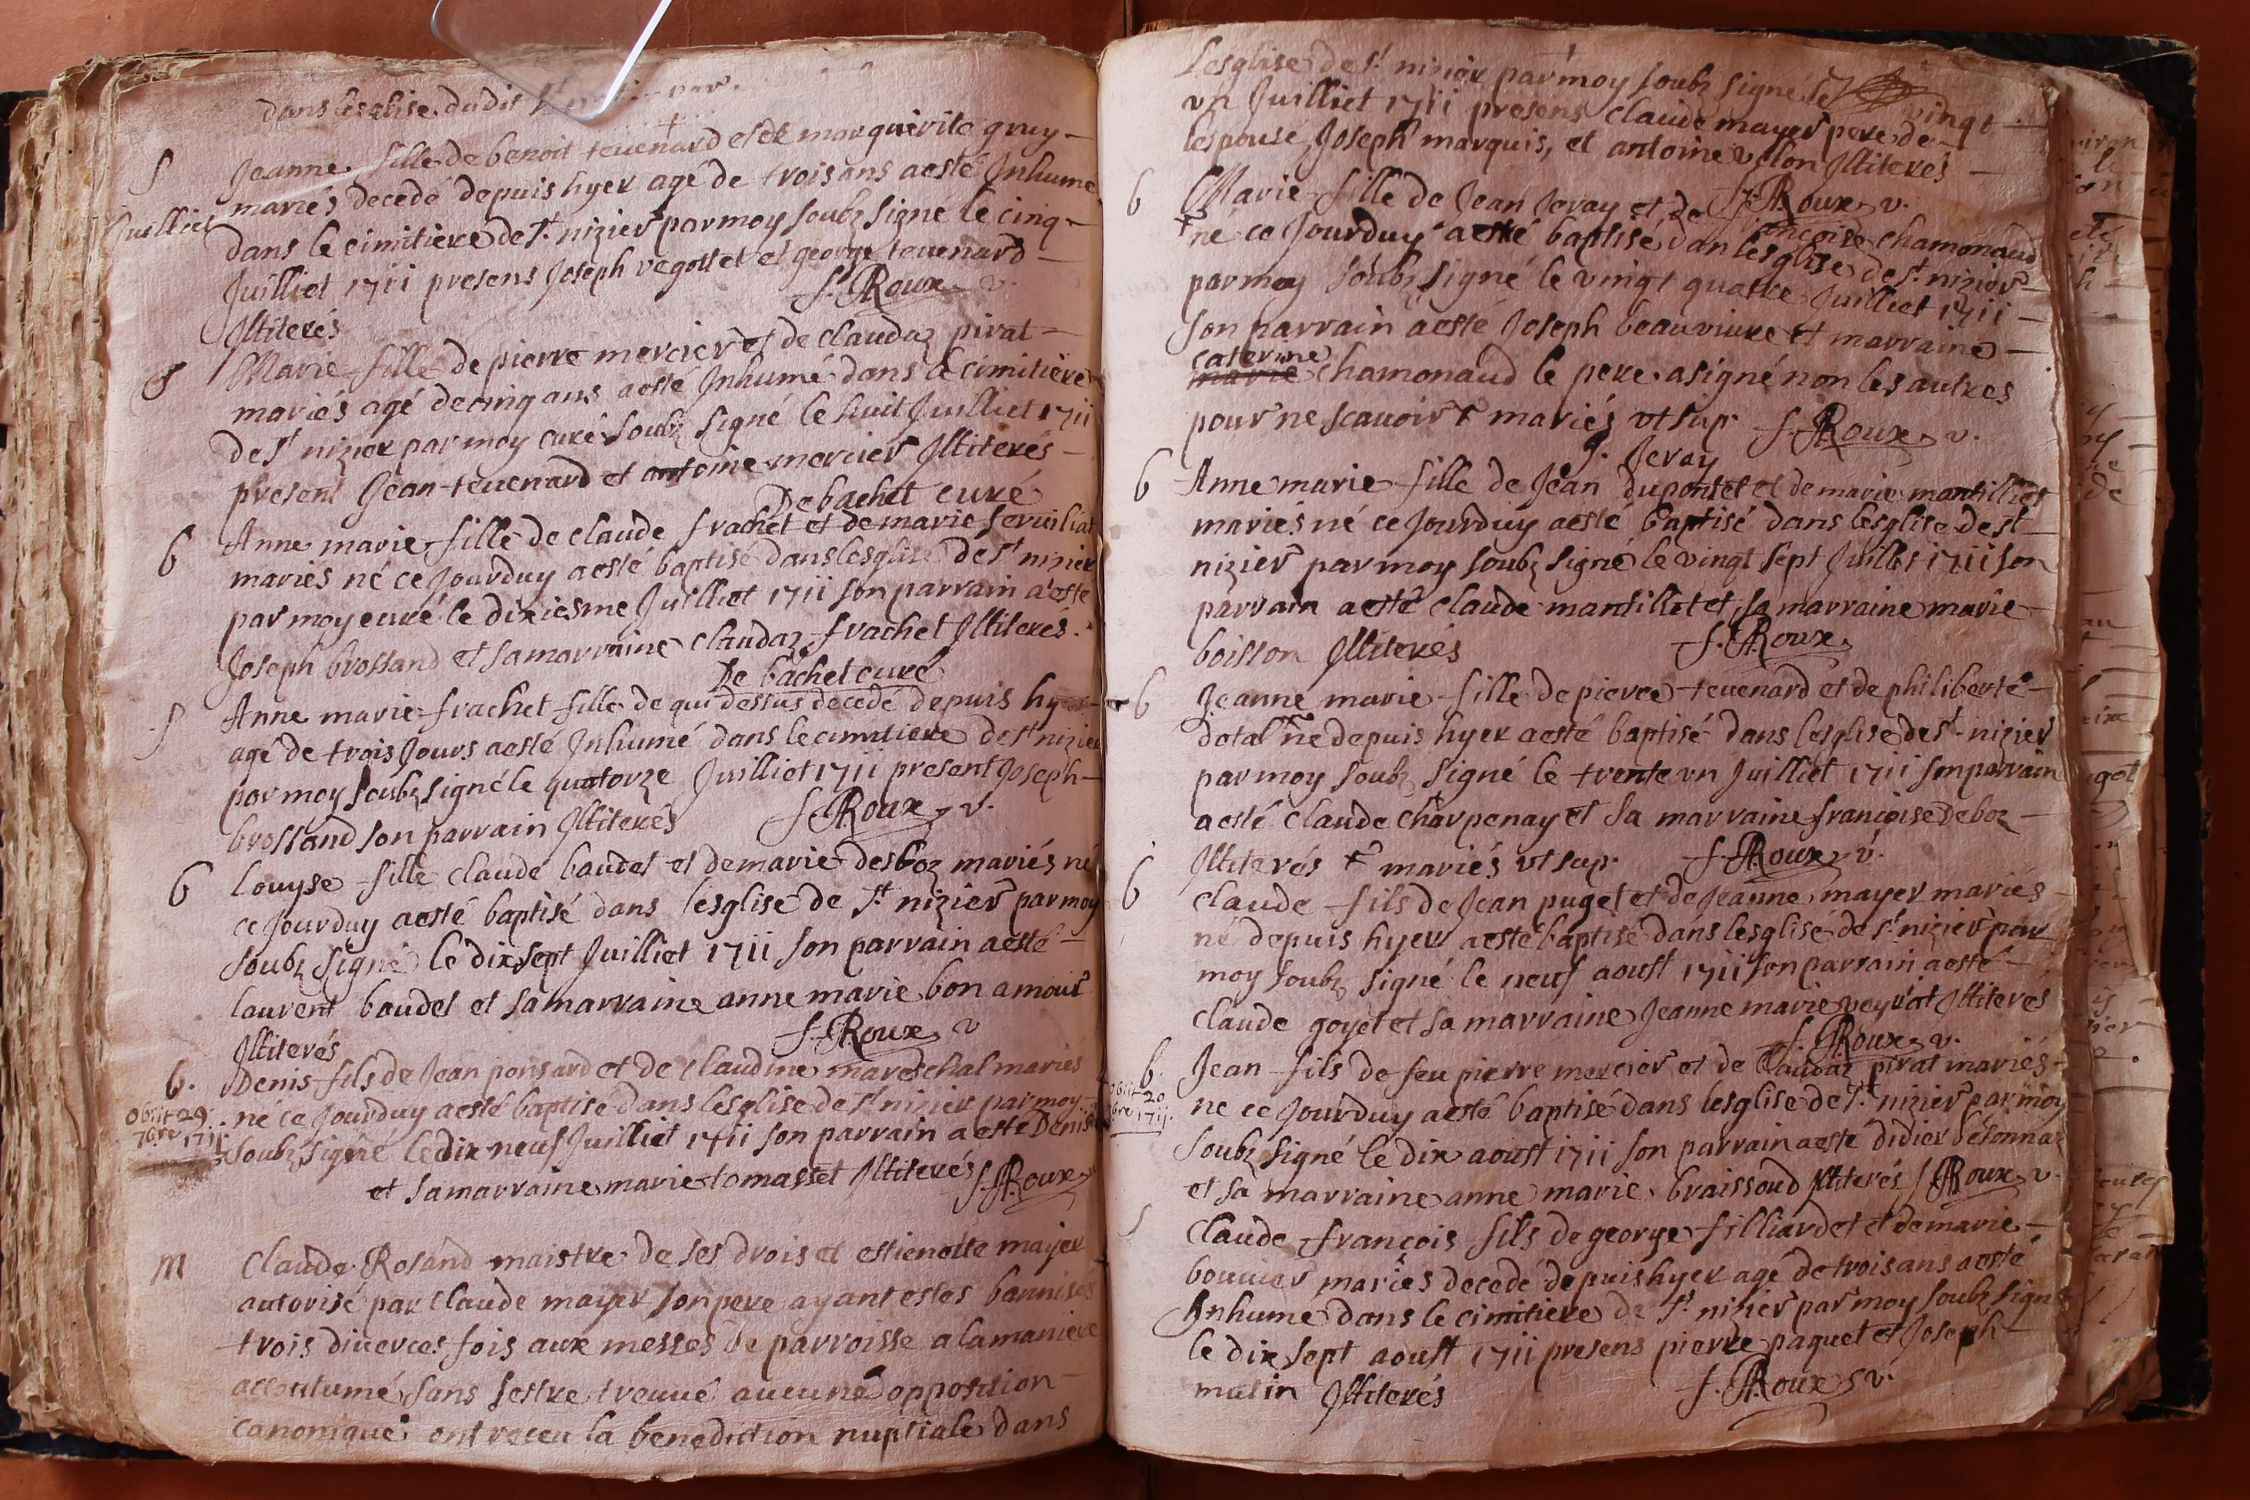 dans lesglise dudit
S Jeanne fille de benoit teuenard et de marguerite gruy
mariés decedé depuis hyer agé de trois ans aesté Inhumé
Juilliet dans le cimitiere de St nizier par moy soubz signé le cinq
Juilliet 1711 presens Joseph regottet et george teuenard
Illiterés S. Roux v.
S Marie fille de pierre mercier et de claudaz pirat
mariés agé de cinq ans aesté Inhumé dans le cimitiere
de St nizier par moy curé soubz signé le huit Juilliet 1711
present Jean teuenard et antoine mercier Illiterés
De bachet curé
b Anne marie fille de claude frachet et de marie seruiliat
mariés né ce Jourduy aesté baptisé dans lesglise de St nizier
par moy curé le dixiesme Juilliet 1711 son parrain a esté
Joseph brossand et sa marraine claudaz frachet Illiterés.
De bachet curé
S Anne marie frachet fille de qui dessus decedé depuis hyer
agé de trois Jours aesté Inhumé dans le cimitiere de St nizier
par moy soubz signé le quatorze Juilliet 1711 present Joseph
brossand son parrain Illiterés S. Roux v.
b Louyse fille claude baudet et de marie desboz mariés né
ce Jourduy aesté baptisé dans lesglise de St nizier par moy
soubz signé le dix sept Juilliet 1711 son parrain aesté
laurent baudet et sa marraine anne marie bon amour
Illiterés S. Roux v
b. Denis fils de Jean ponsard et de claudine mareschal mariés
obiit 29. né ce Jourduy aesté baptisé dans lesglise de St nizier par moy
7bre 1711. soubz signé le dix neuf Juilliet 1711 son parrain aesté Denis
et sa marraine marie tomasset Illiterés S. Roux
m Claude Rosand maistre de ses drois et estienette mayer
autorisé par claude mayer son pere ayant estes bannises
trois diuerces fois aux messes de parroisse a la maniere
accoutumé sans sestre treuué aucune opposition
canonique ont receu la benediction nuptiale dans
Lesglise de St nizier par moy soubz signé le vingt
vn Juilliet 1711 presens claude mayer pere de
lespouse, Joseph marquis, et antoine Illiterés
S. Roux v.
b Marie fille de Jean Jeray et de françoise chamonaud
né ce Jourduy aesté baptisé dan lesglise de St nizier
par moy soubz signé le vingt quatre Juilliet 1711
son parrain aesté Joseph beauviure et marraine
caterine
marie chamonaud le pere a signé non les autres
pour ne scauoir mariés vt sup. S. Roux v.
J. Jeray
b Anne marie fille de Jean dupontet et de marie mantilliet
mariés né ce Jourduy aesté baptisé dans lesglise de St
nizier par moy soubz signé le vingt sept Juillet 1711 son
parrain aesté claude mantillet et sa marraine marie
boisson Illiterés S. Roux
b Jeanne marie fille de pierre teuenard et de philiberte
dotal né depuis hyer aesté baptisé dans lesglise de St nizier
par moy soubz signé le trente vn Juilliet 1711 son parrain
aesté claude charpenay et sa marraine françoise deboz
Illiterés mariés vt sup. S. Roux v.
b claude fils de Jean puget et de Jeanne mayer mariés
né depuis hyer aesté baptisé dans lesglise de St nizier par
moy soubz signé le neuf aoust 1711 son parrain aesté
claude goyet et sa marraine Jeanne marie veyrat Illiterés
S. Roux v.
b. Jean fils de feu pierre mercier et de claudaz pirat mariés
obiit 20 né ce Jourduy aesté baptisé dans lesglise de St nizier par moy
bre 1711. soubz signé le dix aoust 1711 son parrain aesté didier
et sa marraine anne marie braissoud Illiterés S. Roux v.
S claude françois fils de george filliardet et de marie
bouuier mariés decedé depuis hyer agé de trois ans aesté
Inhumé dans le cimitiere de St nizier par moy soubz signé
le dix sept aoust 1711 presens pierre paquet et Joseph
matin Illiterés S. Roux v.